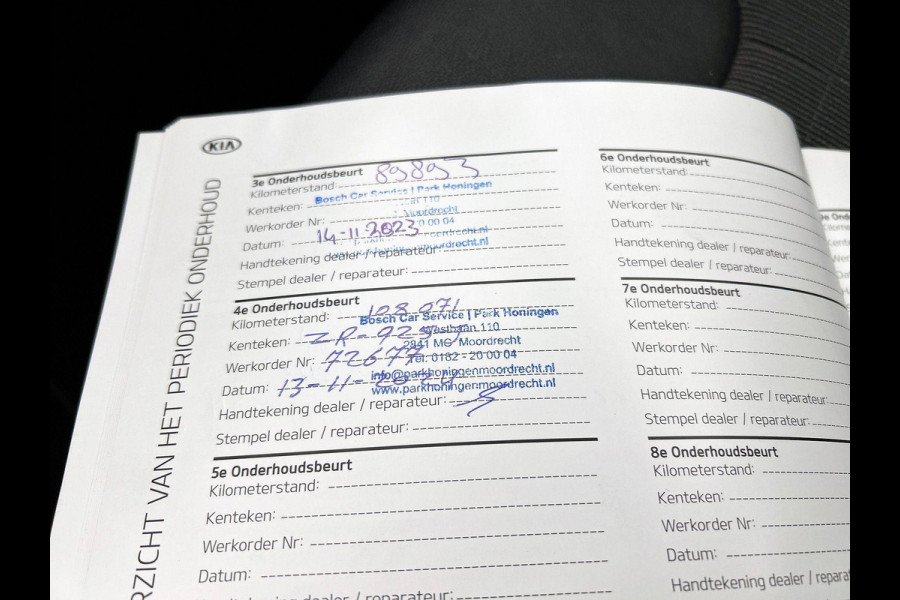 KIA
RZICHT VAN HET PERIODIEK ONDERHOUD
3e Onderhoudsbeurt
Kilometerstand: 89893
Kenteken:
Bosch Car Service | Park Honingen
Werkorder Nr:
Moordrecht
Datum: 14-11-2023
Handtekening dealer / reparateur:
Stempel dealer / reparateur:
4e Onderhoudsbeurt
Kilometerstand: 108.071
Bosch Car Service | Park Honingen
Kenteken: ZR-92
Westbaan 110
2841 MC Moordrecht
Werkorder Nr: 72677
Tel. 0182 - 20 00 04
info@parkhoningenmoordrecht.nl
Datum: 13-11-2024
www.parkhoningenmoordrecht.nl
Handtekening dealer / reparateur:
Stempel dealer / reparateur:
5e Onderhoudsbeurt
Kilometerstand:
Kenteken:
Werkorder Nr:
Datum:
6e Onderhoudsbeurt
Kilometerstand:
Kenteken:
Werkorder Nr:
Datum:
Handtekening dealer / reparateur:
Stempel dealer / reparateur:
7e Onderhoudsbeurt
Kilometerstand:
Kenteken:
Werkorder Nr:
Datum:
Handtekening dealer / reparateur:
Stempel dealer / reparateur:
8e Onderhoudsbeurt
Kilometerstand:
Kenteken:
Werkorder Nr:
Datum:
Handtekening dealer / repara